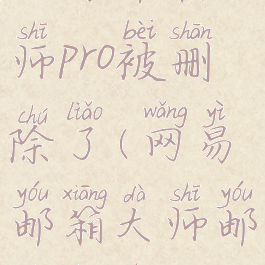 shī bèi shān
师pro被删
chú liǎo wǎng yì
除了(网易
yóu xiāng dà shī yóu
邮箱大师邮